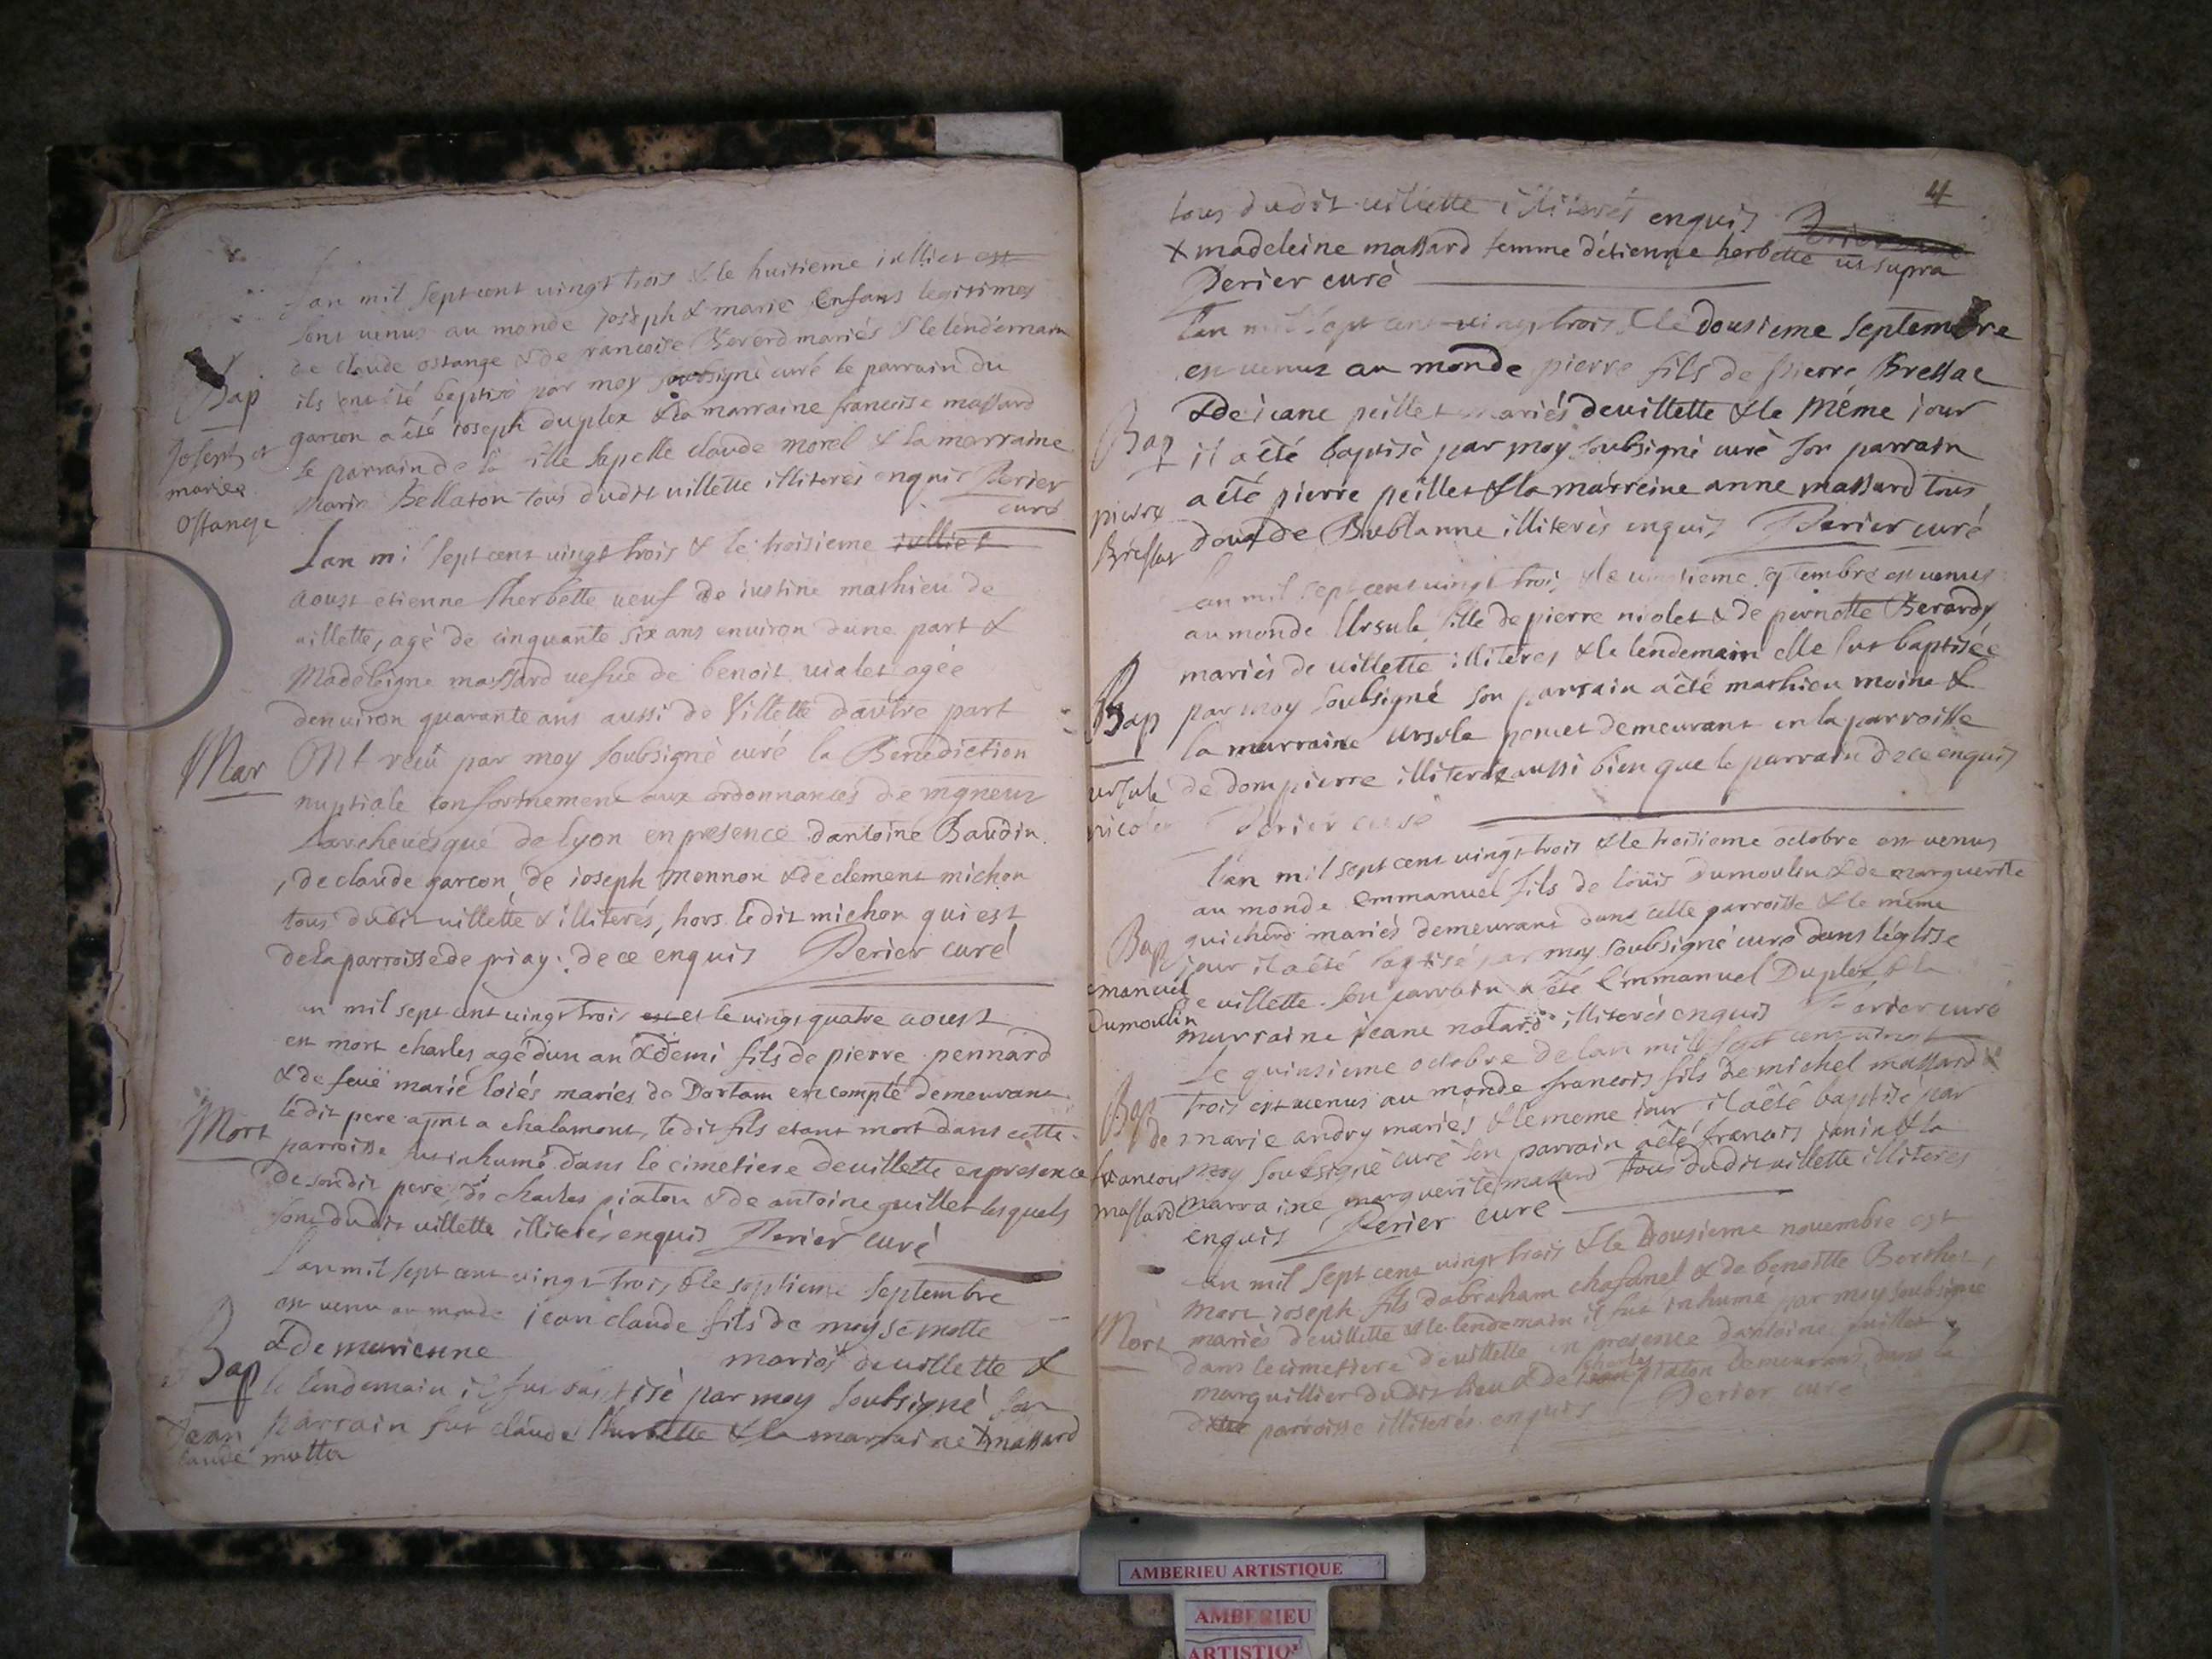 Lan mil sept cent vingt trois & le huitieme iulliet est
sont venus au monde joseph & marie Enfans legitimes
de claude ostange & de francoise Bererd mariés & le lendemain
ils ont été baptisé par moy soubsigné curé le parrain du
garcon a été joseph duplex & la marraine francoise massard
le parrain de la fille sapelle claude morel & la marraine
marie Bellaton tous dudit villette illiterés enquis Perier
curé
Bap
Joseph et
mariee
Ostange
Lan mil sept cent vingt trois & le troisieme iulliet
aoust etienne lherbette veuf de iustine mathieu de
villette, agé de cinquante six ans environ dune part &
Madeleigne massard vefve de benoit vialet agée
denviron quarante ans aussi de Villette dautre part
Mar
Ont reçû par moy soubsigné curé la Benediction
nuptiale conformement aux ordonnances de mgneur
Larchevêque de lyon en presence dantoine Baudin
, de claude garcon, de joseph monnon & de clement michon
tous dudit villette & illiterés, hors ledit michon qui est
de la parroisse de priay. de ce enquis Perier curé
an mil sept cent vingt trois est et le vingt quatre aoust
est mort charles agé dun an & demi fils de pierre pennard
& de feuë marie loiés mariés de Dortam en compté demeurant
ledit pere a chalamont, ledit fils etant mort dans cette
Mort
parroisse fut inhumé dans le cimetiere de villette en presence
de sondit pere de charles piaton & de antoine guillet lesquels
sont dudit villette illiterés enquis Perier curé
Lan mil sept cent vingt trois & le septieme septembre
est venu au monde jean claude fils de moyse motte
& de maricenne mariés de villette &
Bap
le lendemain il fut baptisé par moy soubsigné son
parrain fut claude lherbette & la marraine + massard
Jean
claude motta
4
tous dudit villette illiterés enquis Perier curé
+ madeleine massard femme détienne herbette ut supra
Perier curé
Lan mil sept cent vingt trois & le dousieme septembre
est venus au monde pierre fils de pierre Bressat
& de jeane peillet mariés de villette & le même jour
Bap
il a été baptisé par moy soubsigné curé son parrain
a été pierre peillet & la marreine anne massard tous
pierre
Bressat
deux de Bublanne illiterés enquis Perier curé
Lan mil sept cent vingt trois & le septembre est venus
au monde Ursule fille de pierre nicolet & de pernette Berardy
mariés de villette illiteres & le lendemain elle fut baptisée
Bap
par moy soubsigné son parrain a été mathieu moine &
la marraine ursule poncet demeurant en la parroisse
ursule
de dompierre illiterée aussi bien que le parrain de ce enquis
nicolet
Perier curé
Lan mil sept cent vingt trois & le troisieme octobre est venus
au monde Emmanuel fils de loüis Dumoulin & de marguerite
guicherd mariés demeurant dans cette parroisse & le même
Bap
jour il a été baptisé par moy soubsigné curé dans léglise
emanuel
de villette. son parrain a été Emmanuel Duplex & la
Dumoulin
marraine jeane notard illiterés enquis Perier curé
Le quinsieme octobre de lan mil sept cent vingt
trois est venus au monde francois fils de michel massard &
Bap
de marie andry mariés & le meme jour il a été baptisé par
francois
moy soubsigné curé son parrain a été francois janin & la
massard
marraine marguerite massard tous dudit villette illiteres
enquis Perier curé
Lan mil sept cent vingt trois & le dousieme novembre est
mort joseph fils dabraham chafanel & de benoitte Berthet,
mariés de villette & le lendemain il fut inhumé par moy soubsigné
Mort
dans le cimetiere de villette en presence dantoine guillet
marguillier dudit lieu & de charles piaton demeurant dans la
dite parroisse illiterés enquis Perier curé
AMBERIEU ARTISTIQUE
AMBERIEU
ARTISTIQ